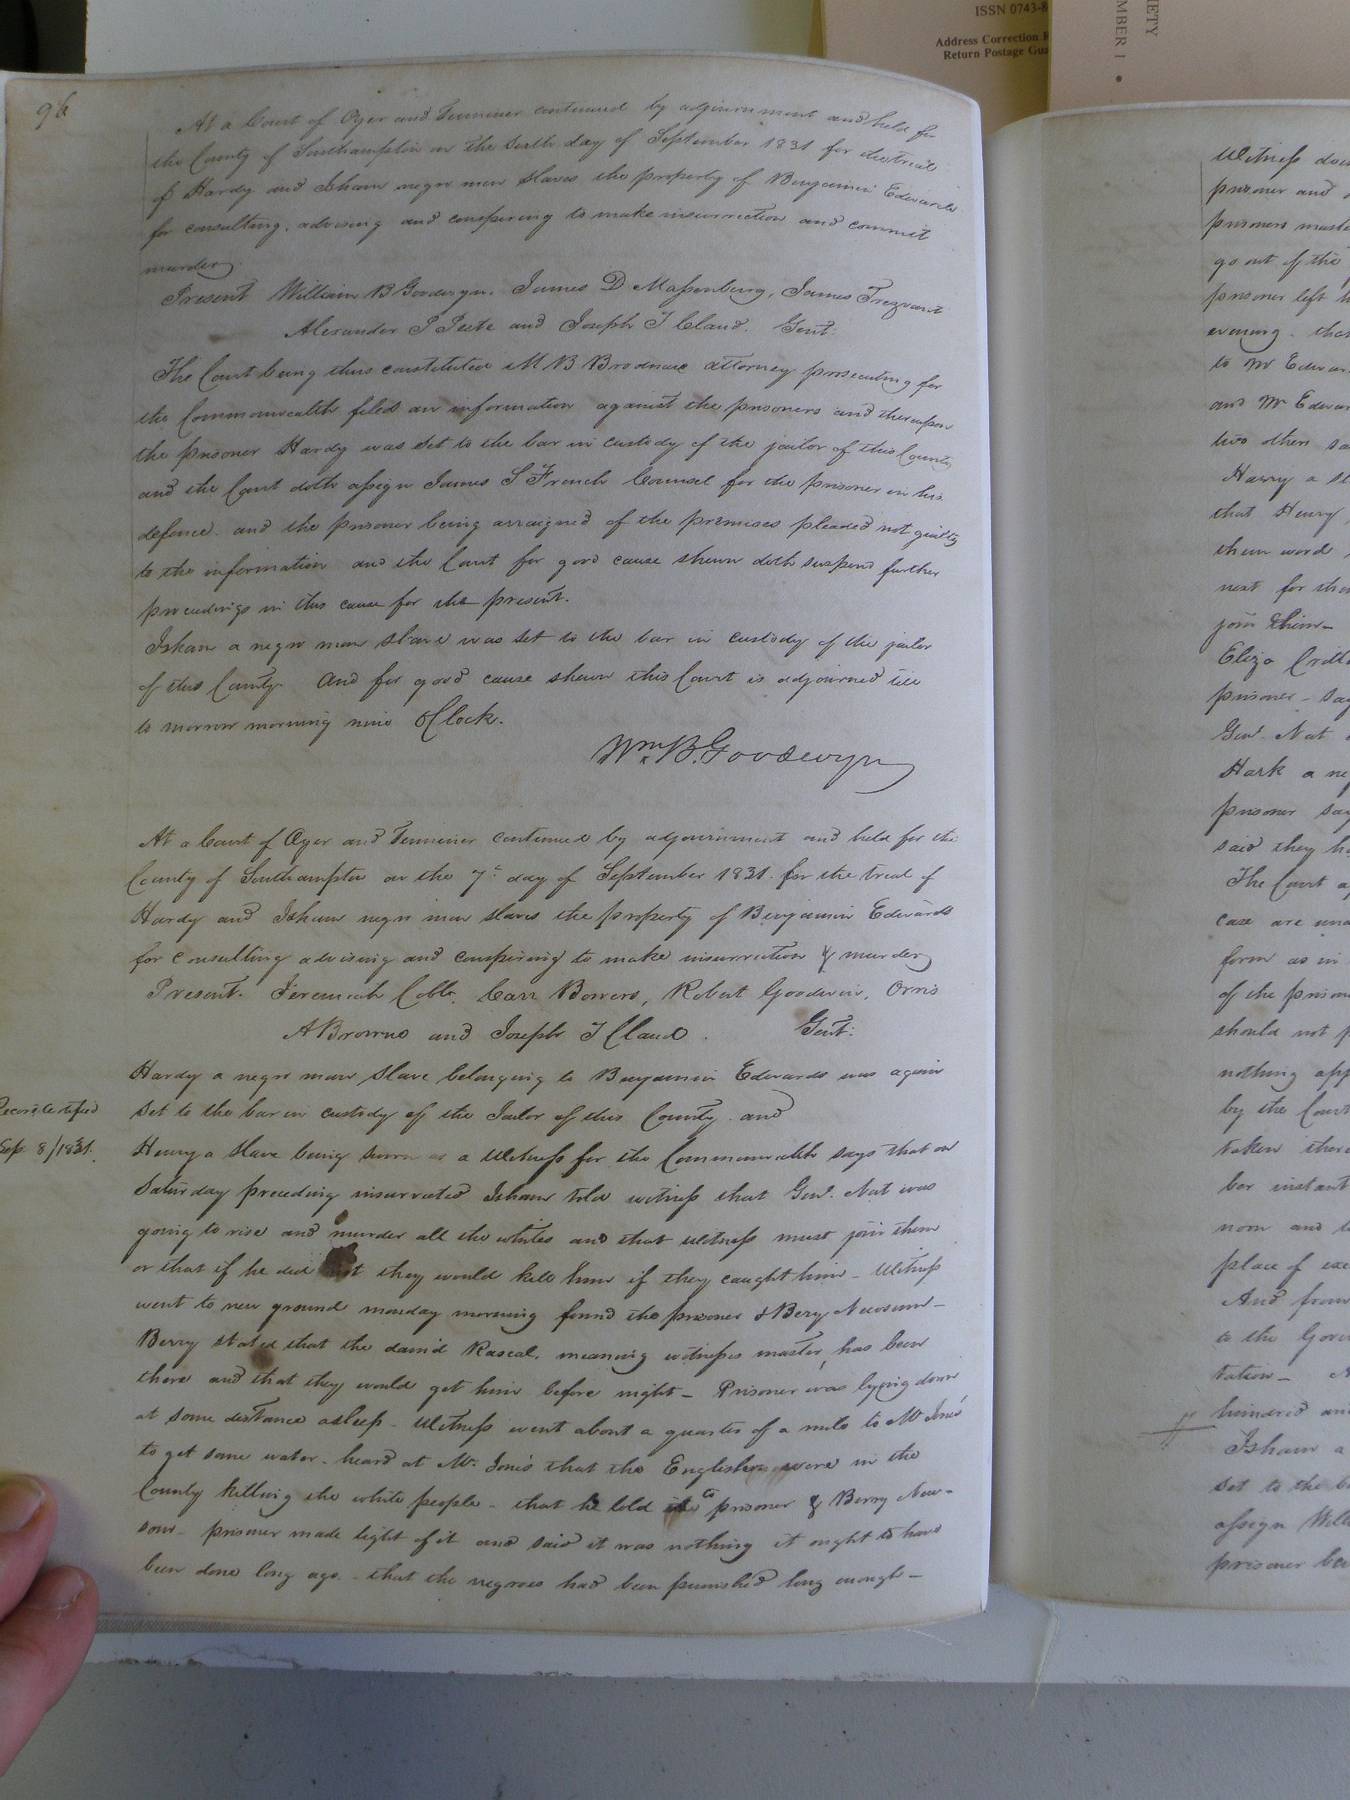 ISSN 0743-8
Address Correction R
Return Postage Gua
IETY
MBER 1 •
96
At a Court of Oyer and Terminer continued by adjournment and held for
the County of Southampton on the sixth day of September 1831 for the trial
of Hardy and Isham negro men slaves the property of Benjamin Edwards
for consulting, advising and conspiring to make insurrection and commit
murder.
Present William B Goodwyn, James D Massenburg, James Trezvant
Alexander P Peete and Joseph T Claud. Gent:
The Court being thus constituted M B Brodnax attorney prosecuting for
the Commonwealth filed an information against the prisoners and thereupon
the prisoner Hardy was set to the bar in custody of the jailor of this County
and the Court doth assign James S French Counsel for the prisoner in his
defence. and the prisoner being arraigned of the premises pleaded not guilty
to the information and the Court for good cause shewn doth suspend further
proceedings in this cause for the present.
Isham a negro man slave was set to the bar in custody of the jailor
of this County And for good cause shewn this Court is adjourned till
to morrow morning nine OClock.
Wm. B. Goodwyn
At a Court of Oyer and Terminer continued by adjournment and held for the
County of Southampton on the 7th day of September 1831. for the trial of
Hardy and Isham negro men slaves the property of Benjamin Edwards
for consulting advising and conspiring to make insurrection & murder
Present. Jeremiah Cobb, Carr Bowers, Robert Goodwin, Orris
A Browne and Joseph T Claud. Gent:
Hardy a negro man slave belonging to Benjamin Edwards was again
set to the bar in custody of the Jailor of this County and
Record Certified
Sep. 8/1831.
Henry a slave being sworn as a Witness for the Commonwealth says that on
Saturday preceding insurrected Isham told witness that Genl. Nat was
going to rise and murder all the whites and that witness must join them
or that if he did not they would kill him if they caught him – Witness
went to new ground monday morning found the prisoner & Bery Newsum –
Berry stated that the damd Rascal, meaning witness's master, has been
there and that they would get him before night – Prisoner was lyeing down
at some distance asleep – Witness went about a quarter of a mile to Mr Jones'
to get some water – heard at Mr. Jones that the English were in the
County killing the white people – that he told to prisoner & Berry New-
som – prisoner made light of it and said it was nothing it ought to have
been done long ago – that the negroes had been punished long enough –
Witness
prisoner and
prisoners
go out of the
prisoner left
evening.
to Mr
and Mr
two others
Harry a
that Henry
them word
next for
join them –
Eliza
prisoner –
Genl. Nat
Hark a
prisoner
said they
The Court
case are
form as in
of the
should not
nothing
by the Court
taken
bar
noon and
place of
And from
to the
tation –
hundred
Isham a
set to the
assign
prisoner